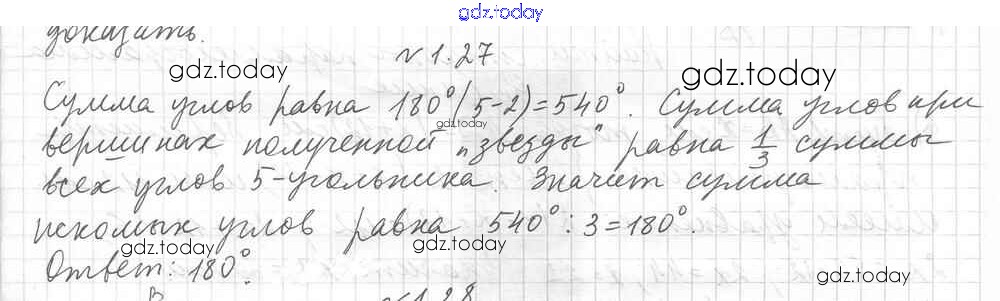 gdz.today
доказать.
№1.27
gdz.today gdz.today
Сумма углов равна 180°(5-2)=540°. Сумма углов при
gdz.today
вершинах полученной "звезды" равна 1/3 суммы
всех углов 5-угольника. Значит сумма
искомых углов равна 540° : 3=180°.
gdz.today gdz.today
Ответ: 180°.
gdz.today
№1.28